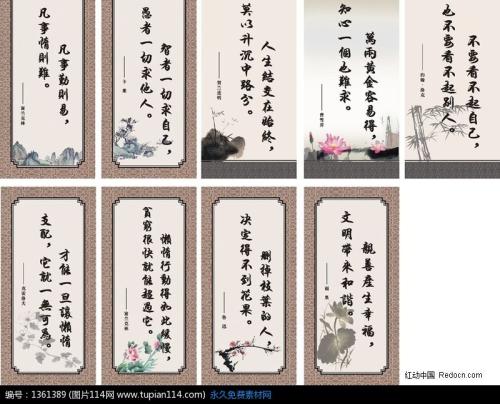 凡事勤則易，
凡事惰則難。
——富兰克林
智者一切求自己，
愚者一切求他人。
——卡莱
人生結交在始終，
莫以升沉中路分。
——贺兰进明
萬兩黃金容易得，
知心一個也難求。
——曹雪芹
不要看不起自己，
也不要看不起別人。
才能一旦讓懶惰
支配，它就一無可為。
——克雷洛夫
懶惰行動得如此緩慢，
貧窮很快就能超過它。
——富兰克林
刪掉枝葉的人，
决定得不到花果。
——鲁迅
親善產生幸福，
文明帶來和諧。
——雨果
红动中国 Redocn.com
编号：1361389 (图片114网 www.tupian114.com) 永久免费素材网